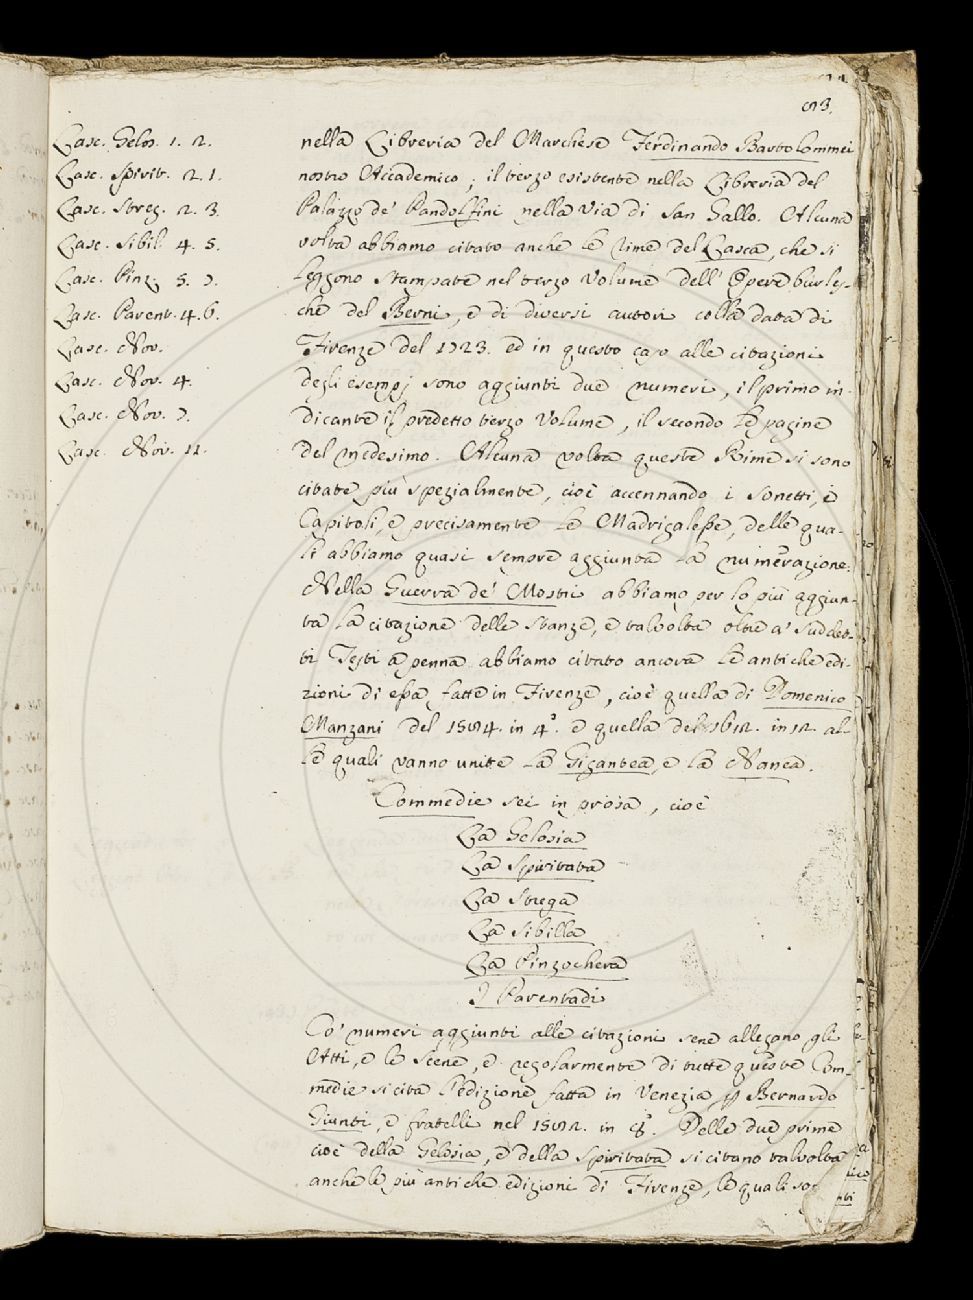 93.
Lasc. Gelos. 1. 2.
Lasc. Spirit. 2. 1.
Lasc. Streg. 2. 3.
Lasc. Sibil. 4. 5.
Lasc. Pinz. 5. 7.
Lasc. Parent. 4. 6.
Lasc. Nov.
Lasc. Nov. 4.
Lasc. Nov. 7.
Lasc. Nov. 11.
nella Libreria del Marchese Ferdinando Bartolommei
nostro Accademico; il terzo esistente nella Libreria del
Palazzo de' Pandolfini nella Via di San Gallo. Alcuna
volta abbiamo citato anche le rime del Lasca, che si
leggono stampate nel terzo Volume dell' Opere burles-
che del Berni, e di diversi autori colla data di
Firenze del 1723. ed in questo caso alle citazioni
degli esempj sono aggiunti due numeri, il primo in-
dicante il predetto terzo Volume, il secondo le pagine
del medesimo. Alcuna volta queste Rime si sono
citate più spezialmente, cioè accennando i Sonetti, i
Capitoli, e precisamente le Madrigalesse, delle qua-
li abbiamo quasi sempre aggiunta la numerazione.
Nella Guerra de' Mostri abbiamo per lo più aggiun-
ta la citazione delle Stanze, e talvolta oltre a' suddet-
ti Testi a penna abbiamo citato ancora le antiche edi-
zioni di essa fatte in Firenze, cioè quella di Domenico
Manzani del 1584. in 4.° e quella del 1612. in 12. al-
le quali vanno unite la Gigantea, e la Nanea.
Commedie sei in prosa, cioè
La Gelosia
La Spiritata
La Strega
La Sibilla
La Pinzochera
I Parentadi
Co' numeri aggiunti alle citazioni sene allegano gli
Atti, e le Scene, e regolarmente di tutte queste Com-
medie si cita l'edizione fatta in Venezia, p Bernardo
Giunti, e fratelli nel 1582. in 8.° Delle due prime
cioè della Gelosia, e della Spiritata si citano talvolta
anche le più antiche edizioni di Firenze, le quali so